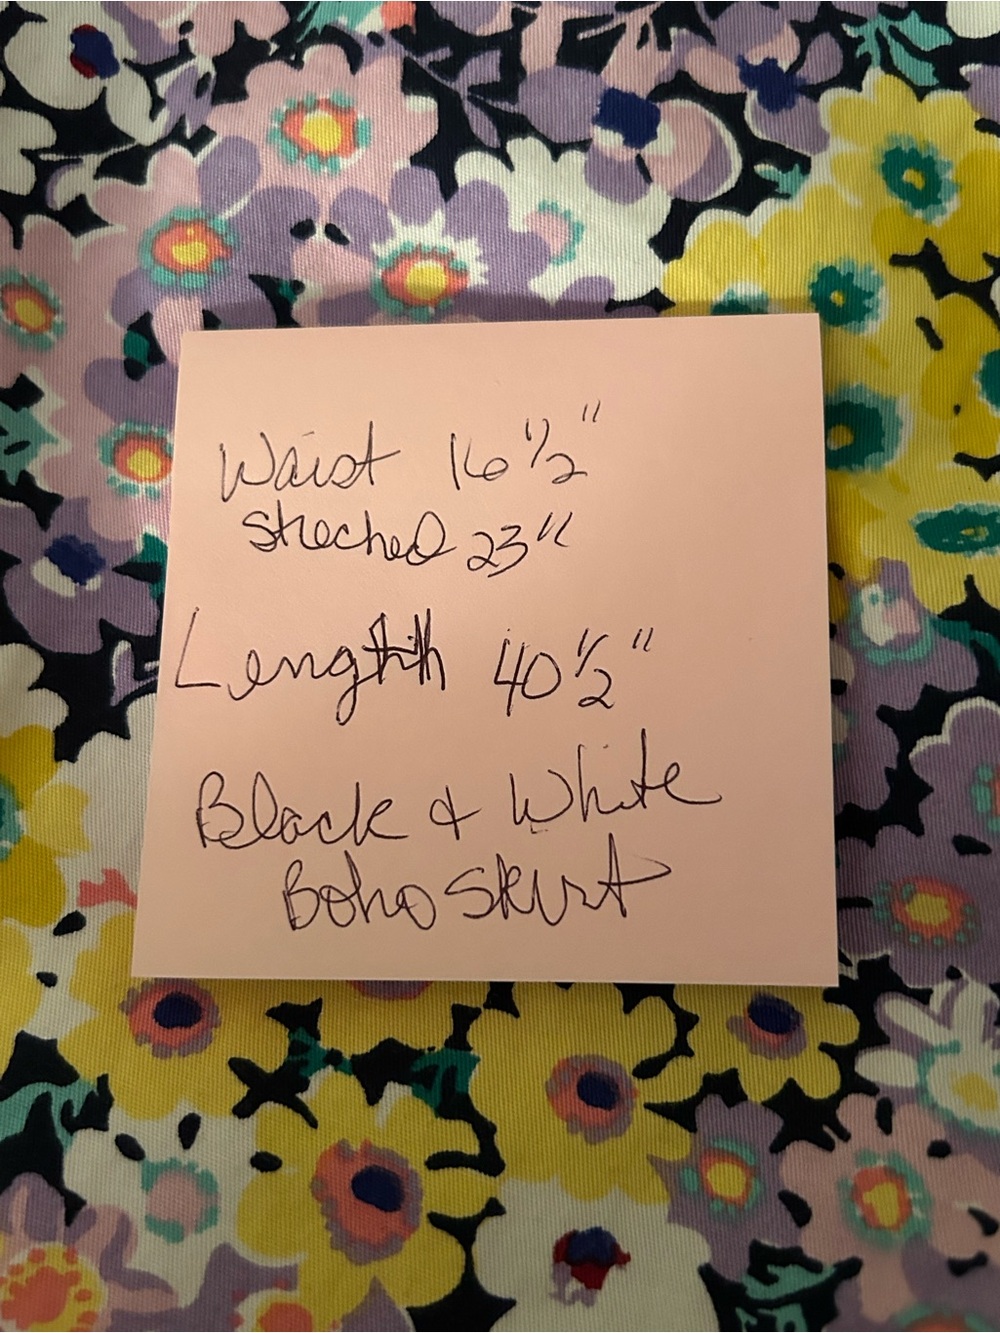 Waist 16 1/2"
streched 23"
Length 40 1/2"
Black & White
Boho Skirt